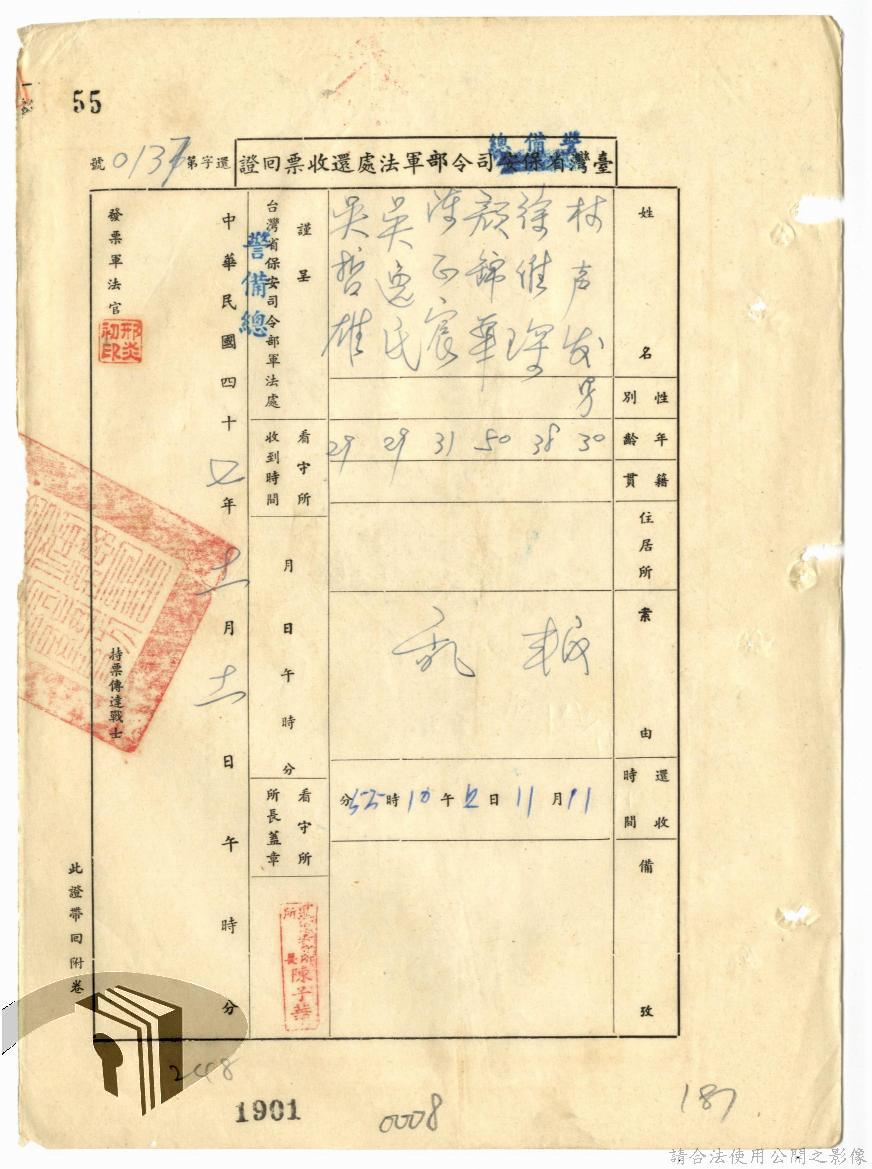 55
臺灣省保安司令部軍法處還收票回證
警備總
還字第0137號
姓名
林声发
徐維琛
顏錦華
陳正宸
吳逸民
吳哲雄
性別
男
年齡
30
38
50
31
29
29
籍貫
住居所
案由
叛
乱
還收時間
11月11日 午10時55分
備攷
謹呈
台灣省保安司令部軍法處
警備總
看守所
收到時間
月日午時分
看守所
所長蓋章
陳子華
中華民國四十七年十一月十一日午時分
發票軍法官
邢炎初印
持票傳達戰士
此證帶回附卷
248
1901
0008
187
請合法使用公開之影像